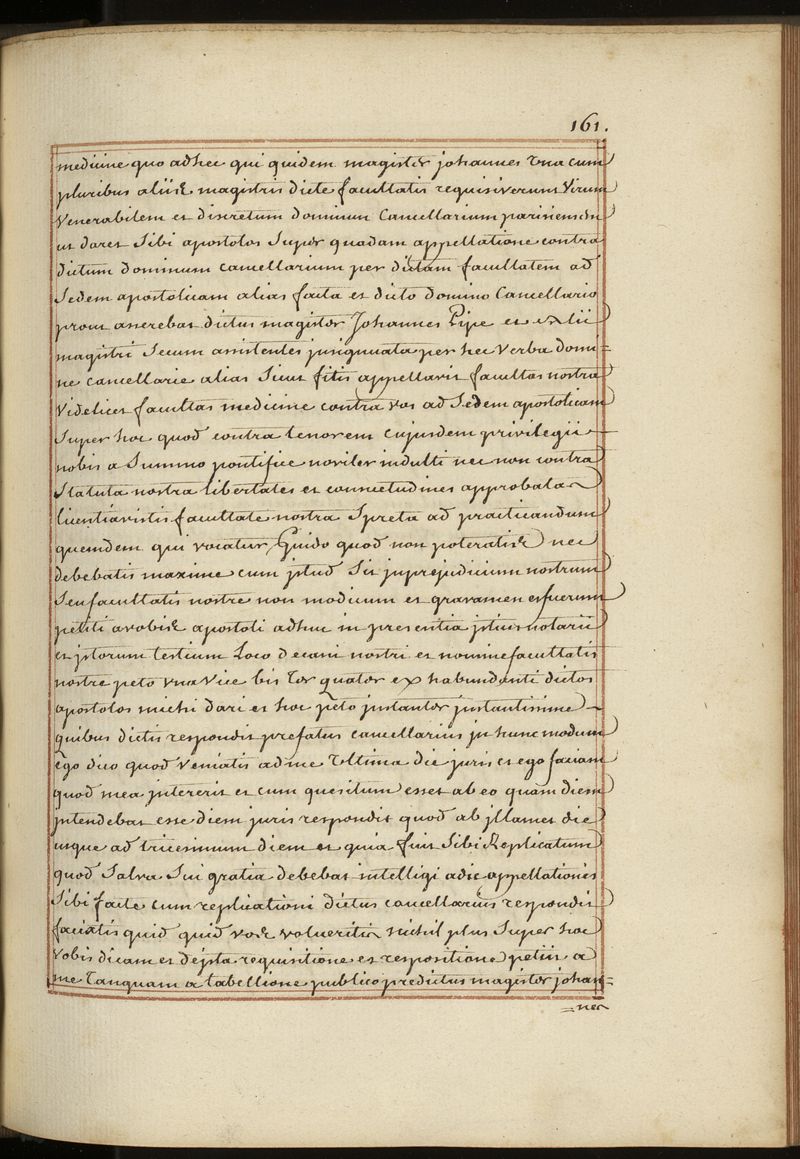 161.
medicine quo adhec qui quidem magister johannes vna cum
pluribus aliis magistris dicte facultatis requisiverunt Virum
Venerabilem et discretum dominum Cancellarium parisiensem
ut daret Sibi apostolos Super quadam appellatione contra
dictum dominum cancellarium per dictam facultatem ad
Sedem apostolicam alias facta et dicto domino Cancellario
prout asserebat dictus magister Johannes Pipe et alii
magistri Secum assistentes insinuata per hec Verba domi=
ne cancellarie alias Sicut scitis appellavit facultas nostra
Videlicet facultas medicine contra vos ad Sedem apostolicam
Super hoc quod contra tenorem cujusdem privilegii
nobis a Summo pontifice noviter indulti nec non contra
Statuta nostra libertates et consuetudines approbata
licentiavistis facultate nostra Spreta ad practicandum
quemdem qui vocatur Guido quod non poteratis nec
debebatis maxime cum jstud Sit jnprejudicium nostrum
Seu facultatis nostre non modicum et gravamen et fuerunt
petiti avobis apostoli adhuc in presentia jstius notarii
et jstorum testium Loco decani nostri et nomine facultatis
nostre peto vna Vice bis Ter quater ex habundenti dictos
apostolos michi dari et hoc peto jnstanter jnstantissime
quibus dictis respondit prefatus cancellarius jn hunc modum
Ego dico quod Veniatis ad me Vltima die juris et ego faciam
quod mea jntererit et cum quesitum esset ab eo quam diem
jntendebat esse diem juris respondit quod ab jllamet die
usque ad tricesimum diem et quia fuit Sibi Replicatum
quod Salva Sui gratia debebat intelligi adie appellationis
Sibi facte cum replicationi dictus cancellarius respondit
faciatis quid quid vos volueritis nichil plus Super hoc
Vobis dicam et de jsta requisitione et responsitione petiit a
me Tanquam a tabellione publico predictus magister johan=
=nes